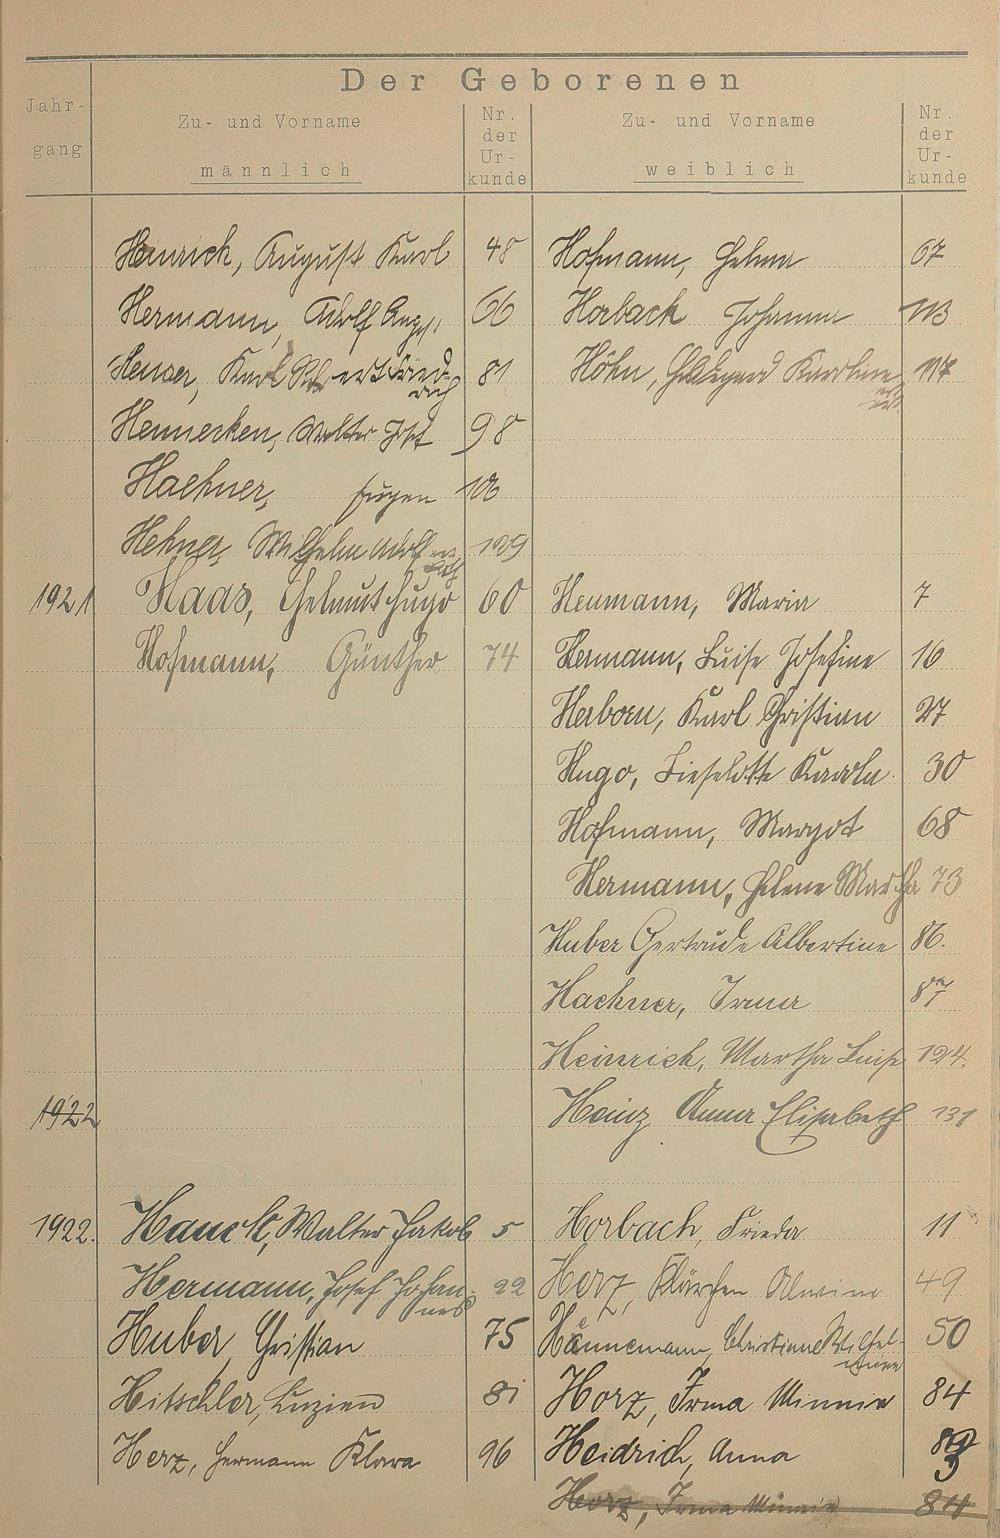 Der Geborenen
Jahr-
gang
Zu- und Vorname
männlich
Nr.
der
Ur-
kunde
Zu- und Vorname
weiblich
Nr.
der
Ur-
kunde
Heinrich, August Karl 48 Hofmann, Helma 67
Hermann, Adolf August 66 Horbach Johanna 113
Heuser, Karl Robert Fried- 81 Höhn, Hildegard Karoline 117
rich
Hennecken, Walter Josef 98
Haehner, Eugen 106
Hehner, Wilhelm Adolf 129
1921 Haas, Helmut Hugo 60 Heumann, Maria 7
Hofmann, Günther 74 Hermann, Luise Josefine 16
Herborn, Karl Christian 27
Hugo, Lieselotte Karola 30
Hofmann, Margot 68
Hermann, Helene Martha 73
Huber Gertrude Albertine 86.
Haehner, Irma 87
Heinrich, Martha Luise 124.
1922 Heinz Anna Elisabeth 131
1922. Hauck, Walter Jakob 5 Horbach, Frieda 11
Hermann, Josef Johan- 22 Herz, Klärchen Alwine 49
nes
Huber, Christian 75 Hännemann, Christiane Wilhel- 50
mine
Hitschler, Luzien 81 Horz, Irma Minnie 84
Herz, Hermann Klara 96 Heidrich, Anna 93
Horz, Irma Minnie 84